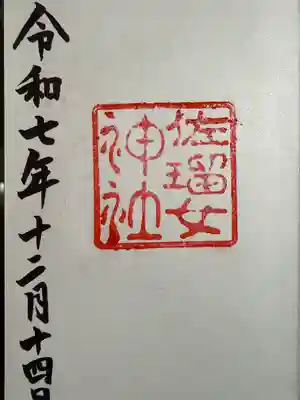 佐瑠女
神社
令和七年十二月十四日